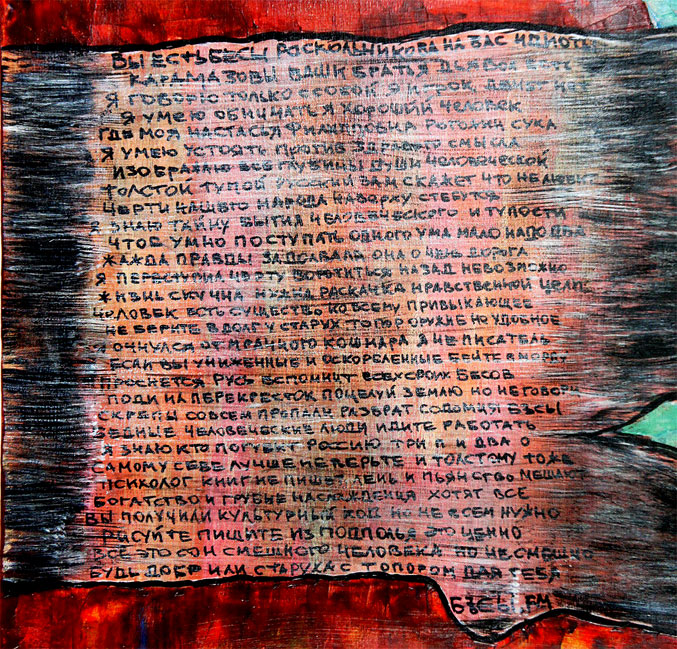 ВЫ ЕСТЬ БЕСЫ РАСКОЛЬНИКОВА НА ВАС ИДИОТЫ
КАРАМАЗОВЫ ВАШИ БРАТЬЯ ДЬЯВОЛ ЕСТЬ
Я ГОВОРЮ ТОЛЬКО С СОБОЙ Я ИГРОК ДЕНЕГ НЕТ
Я УМЕЮ ОБНИМАТЬ Я ХОРОШИЙ ЧЕЛОВЕК
ГДЕ МОЯ НАСТАСЬЯ ФИЛИППОВНА РОГОЖИН СУКА
Я УМЕЮ УСТОЯТЬ ПРОТИВ ЗДРАВОГО СМЫСЛА
ИЗОБРАЖАЮ ВСЕ ГЛУБИНЫ ДУШИ ЧЕЛОВЕЧЕСКОЙ
ТОЛСТОЙ ТУПОЙ ВАМ СКАЖЕТ ЧТО НЕ
ЧЕРТИ НАШЕГО НАРОДА НАВЕРХУ
Я ЗНАЮ ТАЙНУ БЫТИЯ ЧЕЛОВЕЧЕСКОГО И ТУПОСТИ
ЧТОБ УМНО ПОСТУПАТЬ ОДНОГО УМА МАЛО НАДО ДВА
ЖАЖДА ПРАВДЫ ЗАДОЛБАЛА ОНА ОЧЕНЬ ДОРОГА
Я ПЕРЕСТУПИЛ ЧЕРТУ ВОРОТИТЬСЯ НАЗАД НЕВОЗМОЖНО
ЖИЗНЬ СКУЧНА НУЖНА РАСКАЧКА НРАВСТВЕННОЙ ЦЕЛИ
ЧЕЛОВЕК ЕСТЬ СУЩЕСТВО КО ВСЕМУ ПРИВЫКАЮЩЕЕ
НЕ БЕРИТЕ В ДОЛГ У СТАРУХ ТОПОР ОРУЖИЕ НО УДОБНОЕ
Я ОЧНУЛСЯ ОТ МРАЧНОГО КОШМАРА Я НЕ ПИСАТЕЛЬ
ЕСЛИ ВЫ УНИЖЕННЫЕ И ОСКОРБЛЕННЫЕ БЕЙТЕ В МОРДУ
ПРОСНЕТСЯ РУСЬ ВСПОМНИТ ВСЕХ СВОИХ БЕСОВ
ПОДИ НА ПЕРЕКРЕСТОК ПОЦЕЛУЙ ЗЕМЛЮ НО НЕ ГОВОРИ
СКРЕПЫ СОВСЕМ ПРОПАЛИ РАЗВРАТ СОДОМИЯ БѢСЫ
БЕДНЫЕ ЧЕЛОВЕЧЕСКИЕ ЛЮДИ ИДИТЕ РАБОТАТЬ
Я ЗНАЮ КТО ПОГУБЕТ РОССИЮ ТРИ П И ДВА О
САМОМУ СЕБЕ ЛУЧШЕ НЕ ВЕРЬТЕ И ТОЛСТОМУ ТОЖЕ
ПСИХОЛОГ КНИГ НЕ ПИШЕТ ЛЕНЬ И ПЬЯНСТВО МЕШАЮТ
БОГАТСТВО И ГРУБЫЕ НАСЛАЖДЕНИЯ ХОТЯТ ВСЕ
ВЫ ПОЛУЧИЛИ КУЛЬТУРНЫЙ КОД НО НЕ ВСЕМ НУЖНО
РИСУЙТЕ ПИШИТЕ ИЗ ПОДПОЛЬЯ ЭТО ЦЕННО
ВСЁ ЭТО СОН СМЕШНОГО ЧЕЛОВЕКА НО НЕ СМЕШНО
БУДЬ ДОБР ИЛИ СТАРУХА С ТОПОРОМ ДЛЯ ТЕБЯ
БѢСЫ.FM